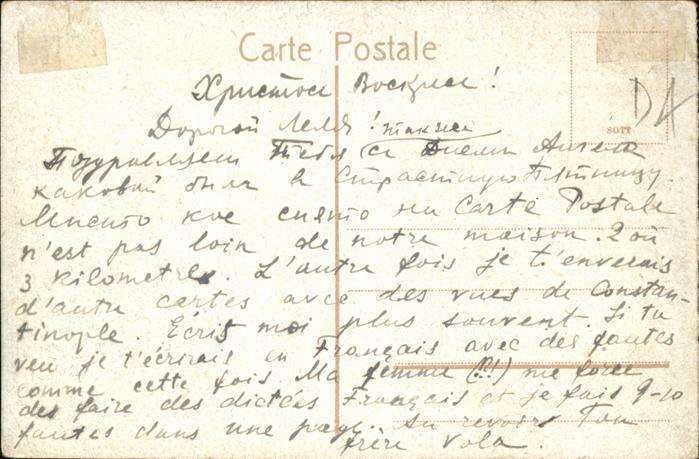 Carte Postale
Христос Воскресе!
DK
SOTT
Дорогой Леля! также
Поздравляем Тебя с Днем Ангела
каковой был в Страстную Пятницу.
Место кое снято на Carte Postale
n'est pas loin de notre maison. 2 ou
3 kilometres. L'autre fois je t'enverais
d'autre cartes avec des vues de Constan-
tinople. Écris moi plus souvent. Si tu
veu je t'écrirais en Français avec des fautes
comme cette fois. Ma femme (?!) me force
des faire des dictées Français et je fais 9-10
fautes dans une page. Au revoir Ton
frère Vola.